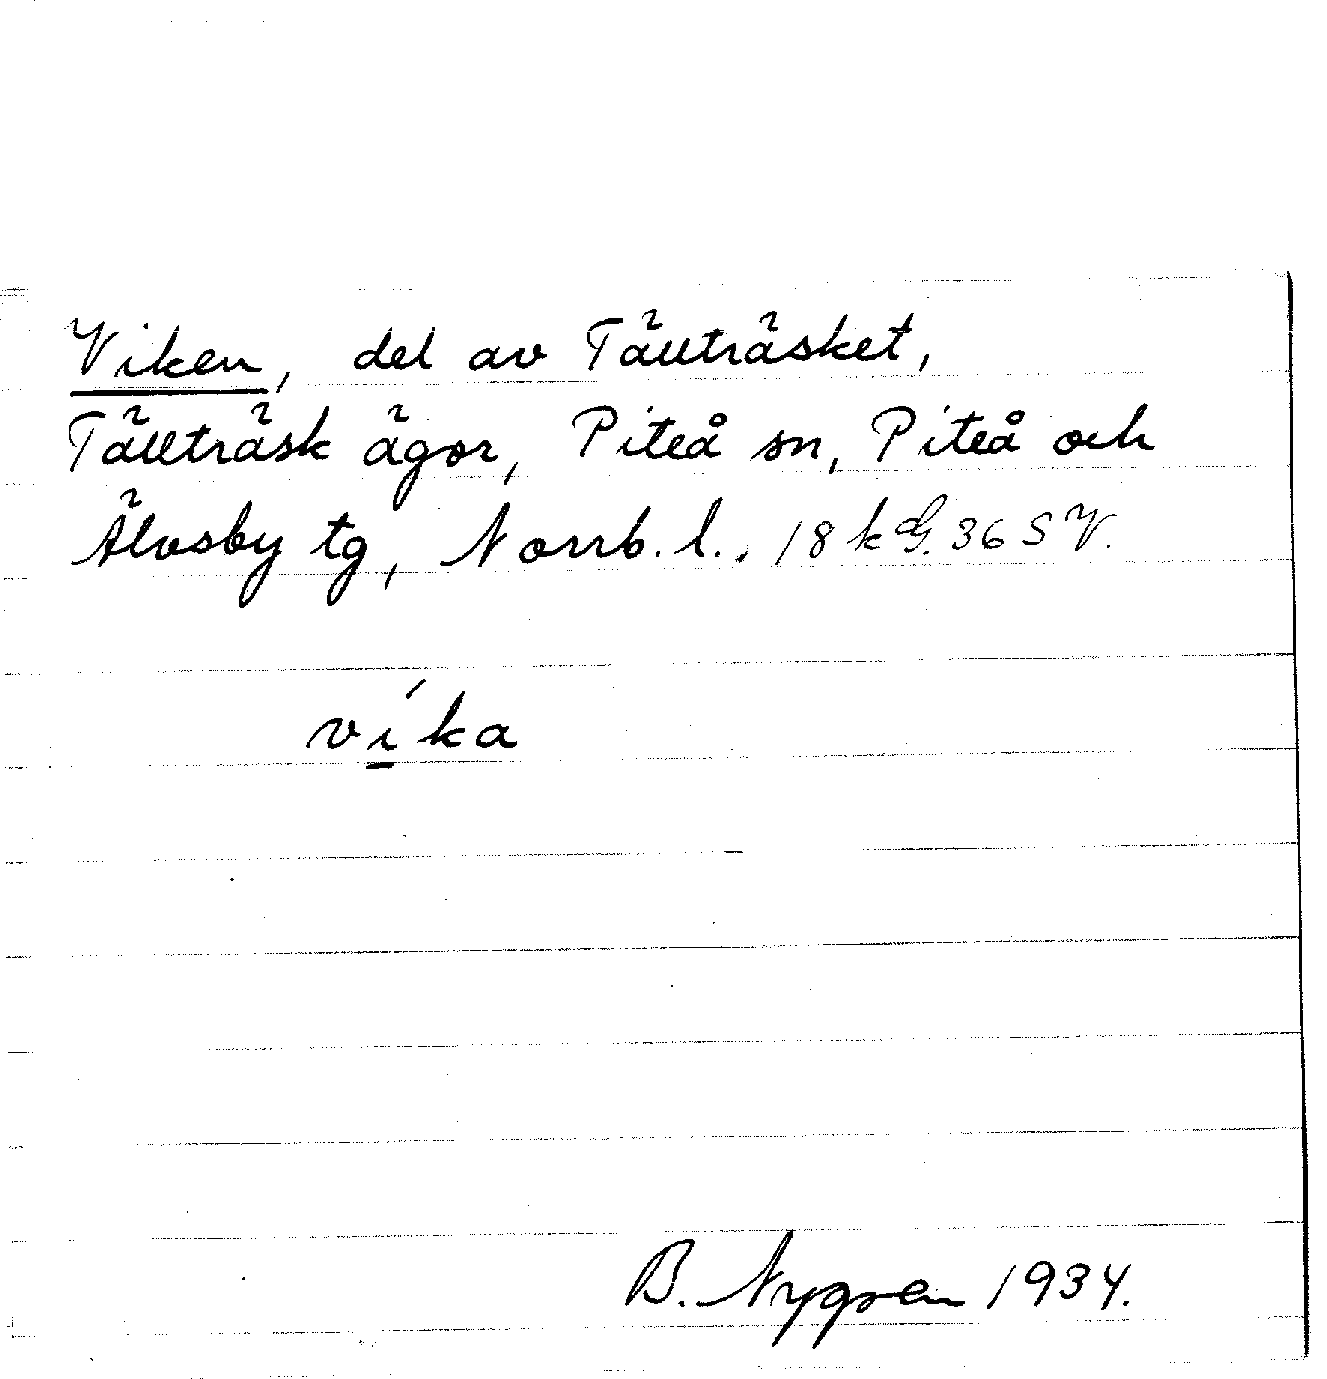 Viken, del av Tällträsket,
Tällträsk ägor, Piteå sn, Piteå och
Älvsby tg, Norrb. l., 18 k G. 36 S V.
víka
B. Nygren 1934.